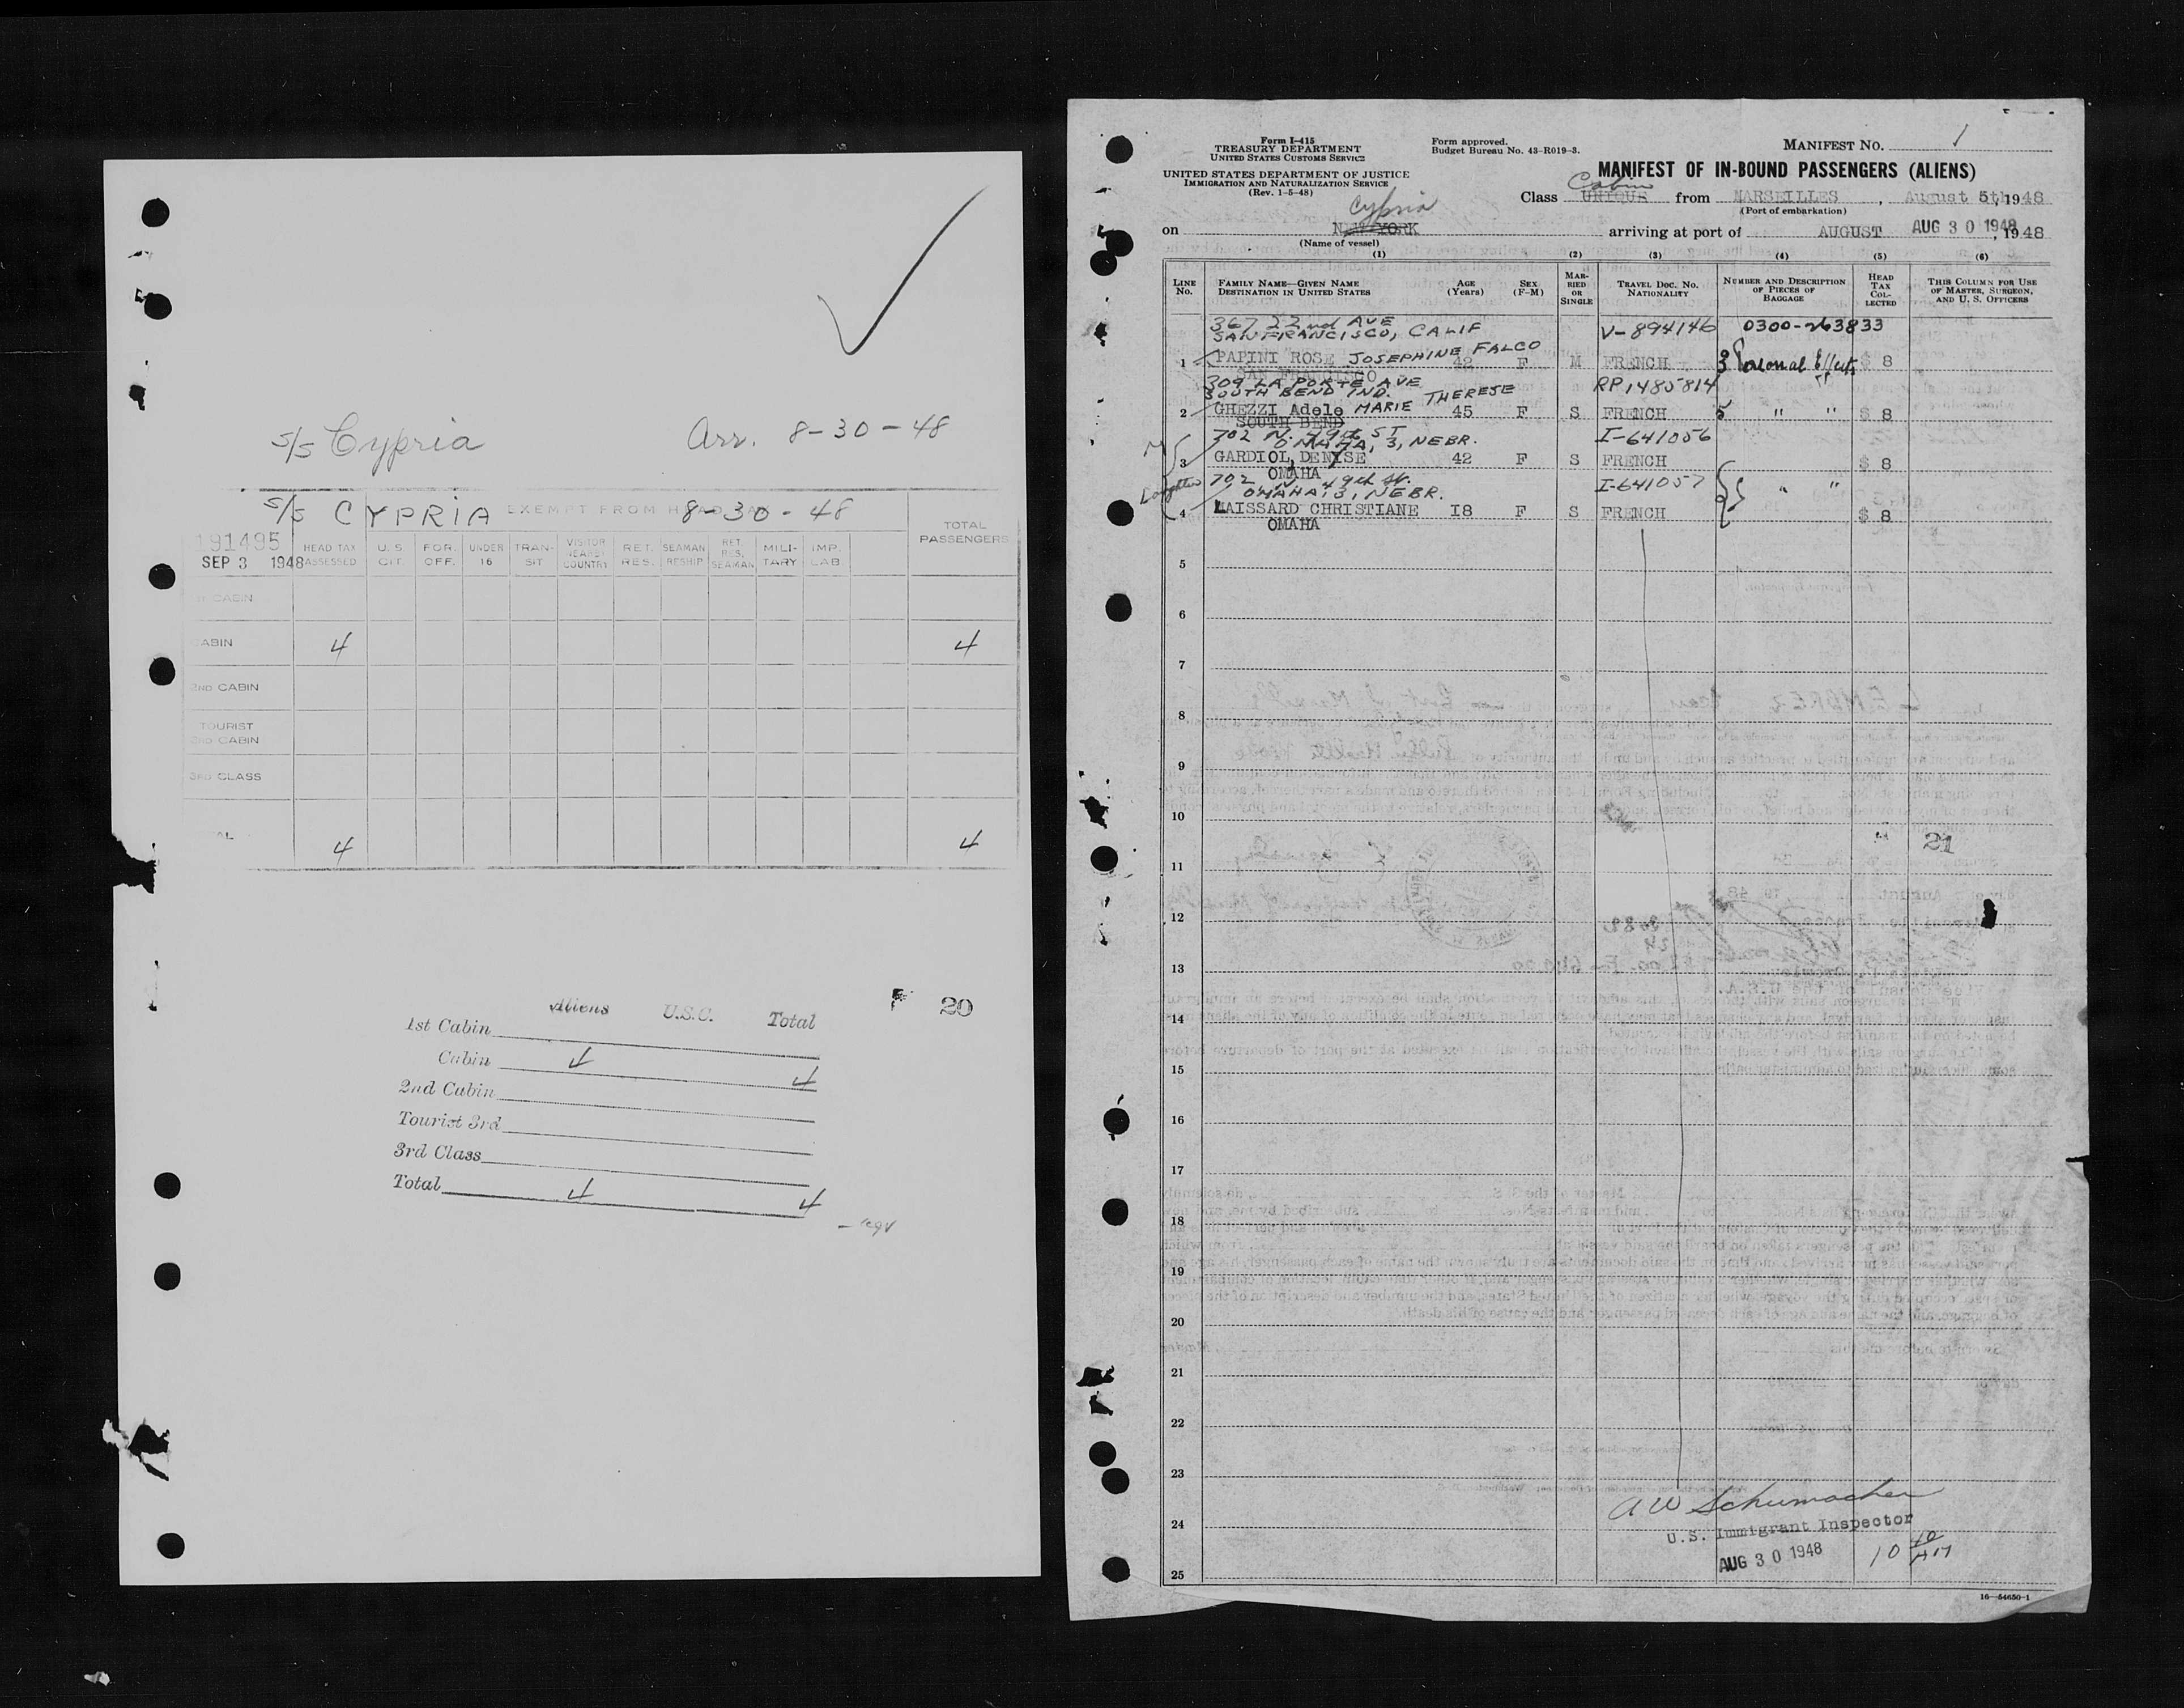 S/S Cypria Arr. 8-30-48
S/S CYPRIA EXEMPT FROM HEAD TAX 8-30-48
191495
SEP 3 1948
HEAD TAX ASSESSED U.S. CIT. FOR. OFF. UNDER 16 TRAN-SIT VISITOR NEAREST COUNTRY RET. RES. SEAMAN RESHIP RET. RES. SEAMAN MILI-TARY IMP. LAB TOTAL PASSENGERS
CABIN
CABIN 4 4
2ND CABIN
TOURIST
3RD CABIN
3RD CLASS
4 4
20
Aliens U.S.C. Total
1st Cabin
Cabin 4 4
2nd Cabin
Tourist 3rd
3rd Class
Total 4 4
Form I-415
TREASURY DEPARTMENT
UNITED STATES CUSTOMS SERVICE
UNITED STATES DEPARTMENT OF JUSTICE
IMMIGRATION AND NATURALIZATION SERVICE
(Rev. 1-5-48)
Form approved.
Budget Bureau No. 43-R019-3.
MANIFEST NO. 1
MANIFEST OF IN-BOUND PASSENGERS (ALIENS)
Cabin
Class UNIQUE from MARSEILLES, August 5th, 1948
(Port of embarkation)
Cypria
on NEW YORK arriving at port of AUGUST AUG 30 1948, 1948
(Name of vessel)
(1) (2) (3) (4) (5) (6)
LINE No. FAMILY NAME—GIVEN NAME DESTINATION IN UNITED STATES AGE (Years) SEX (F-M) MAR-RIED OR SINGLE TRAVEL DOC. NO. NATIONALITY NUMBER AND DESCRIPTION OF PIECES OF BAGGAGE HEAD TAX COL-LECTED THIS COLUMN FOR USE OF MASTER, SURGEON, AND U. S. OFFICERS
367 22nd AVE
SAN FRANCISCO, CALIF V-894146 0300-263833
1 PAPINI ROSE JOSEPHINE FALCO 42 F M FRENCH 3 Personal Effects $ 8
SAN FRANCISCO
309 LA PORTE AVE
SOUTH BEND IND. RP1485814
2 GHEZZI Adele MARIE THERESE 45 F S FRENCH 5 " " $ 8
SOUTH BEND
702 N. 49th ST
OMAHA, 3, NEBR. I-641056
3 GARDIOL, DENYSE 42 F S FRENCH $ 8
OMAHA
702 N. 49th St.
OMAHA, 3, NEBR. I-641057 " "
4 LAISSARD CHRISTIANE 18 F S FRENCH $ 8
OMAHA
Daughter
5
6
7
8
9
10
21
11
12
13
14
15
16
17
18
19
20
21
22
23
24
25
A W Schumacher
U.S. Immigrant Inspector
AUG 30 1948 10 40 AM
16—54650-1